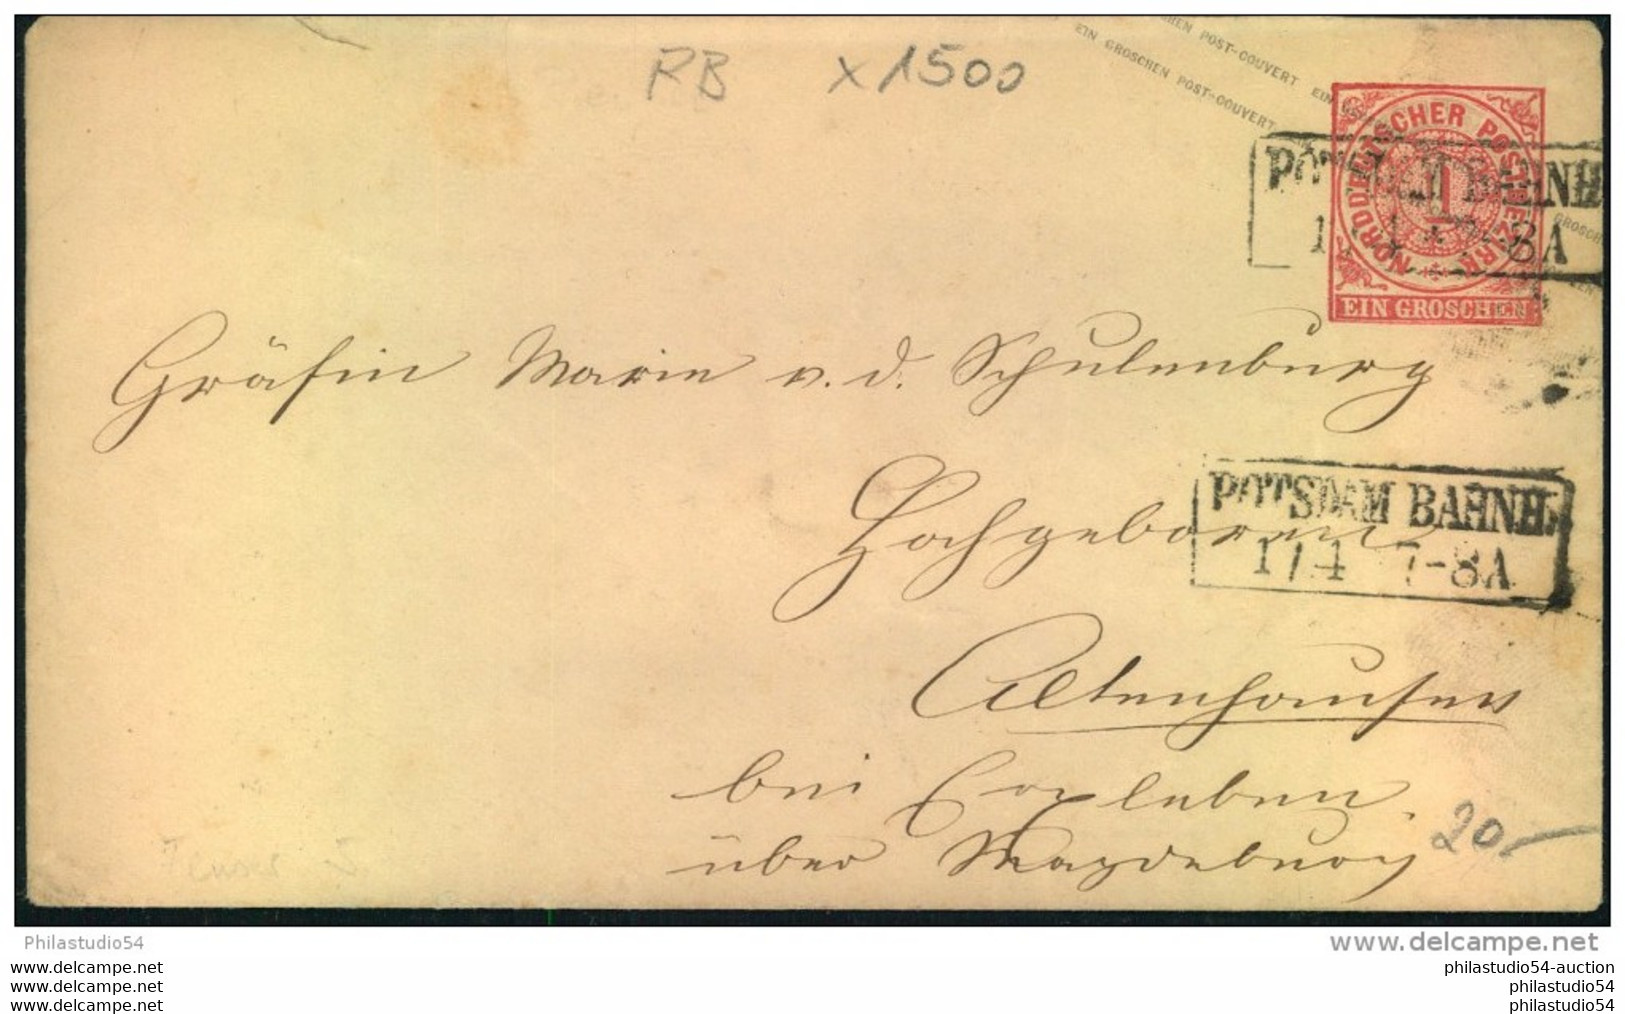 RB x1500
EIN GROSCHEN POST-COUVERT
POST-COUVERT EIN
NORDDEUTSCHER POSTBEZIRK
1
EIN GROSCHEN
POTSDAM BAHNH.
1 4 * 7-8A
GROSCHEN
Gräfin Marie v. d. Schulenburg
Hochgeboren
POTSDAM BAHNH.
1/4 7-8A
Altenhausen
bei Erxleben.
über Magdeburg
20.-
Philastudio54
www.delcampe.net
www.delcampe.net
www.delcampe.net
www.delcampe.net
philastudio54-auction
philastudio54
philastudio54